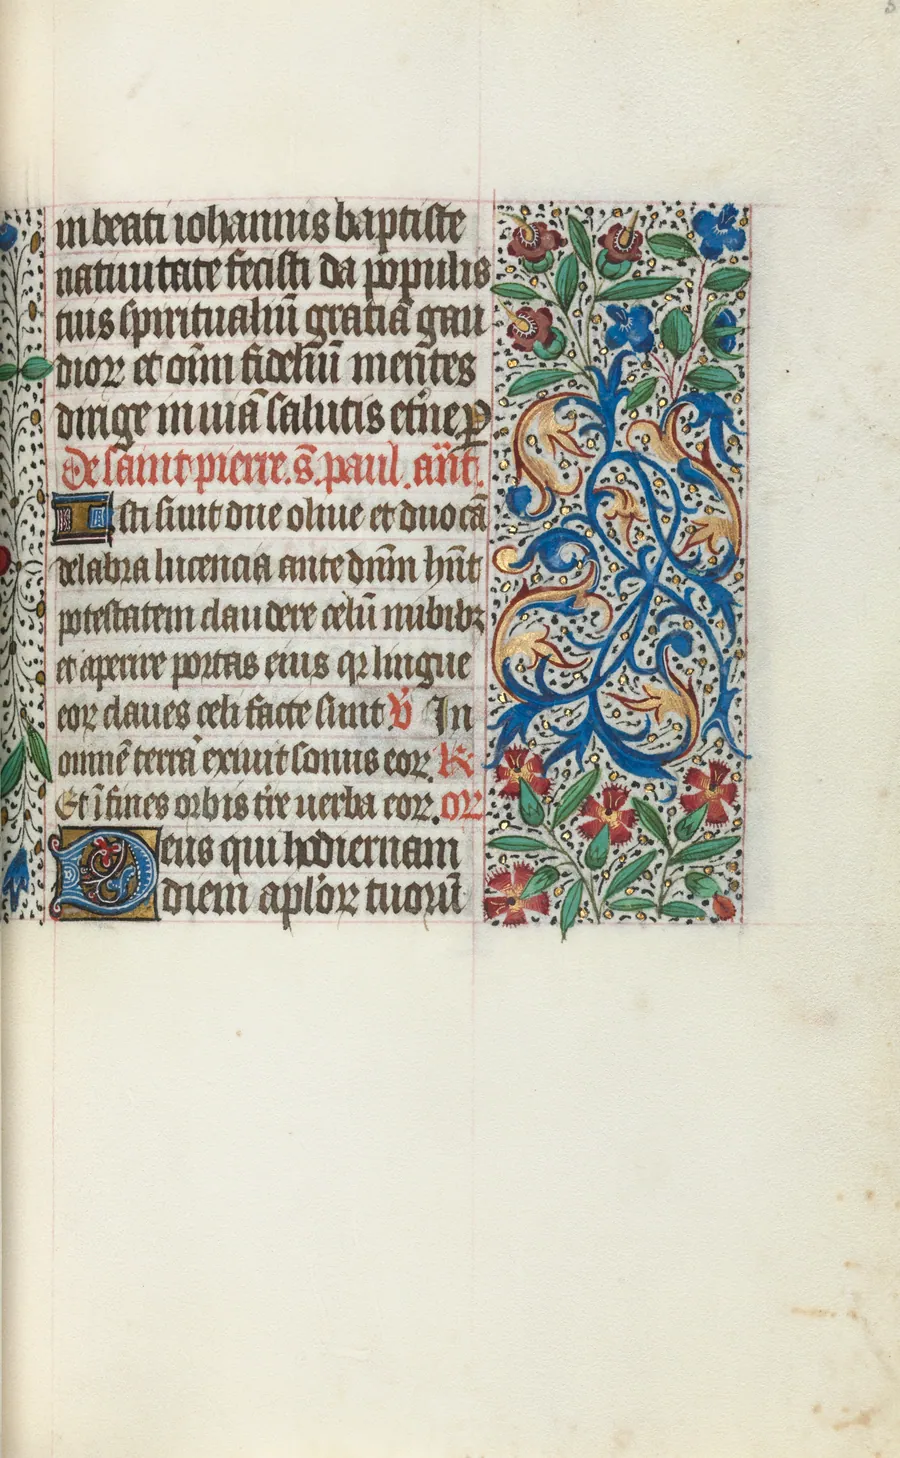 in beati iohannis baptiste
natiuitate fecisti da populis
tuis spiritualiū gratiā gau
dioꝝ et oīm fideliū mentes
dirige in uiā salutis et̄ne ꝑ
De saint pierre. s̄. paul. an̄t.
Isti sunt due oliue et duo cā
delabra lucencia ante dn̄m hn̄t
potestatem claudere celū nubibꝫ
et aperire portas eius qꝛ lingue
eoꝝ claues celi facte sunt V̄ In
omnē terrā exiuit sonus eoꝝ. R̄
Et ī fines orbis tr̄e uerba eoꝝ. oꝛ
Deus qui hodiernam
diem apl'oꝝ tuoꝝū